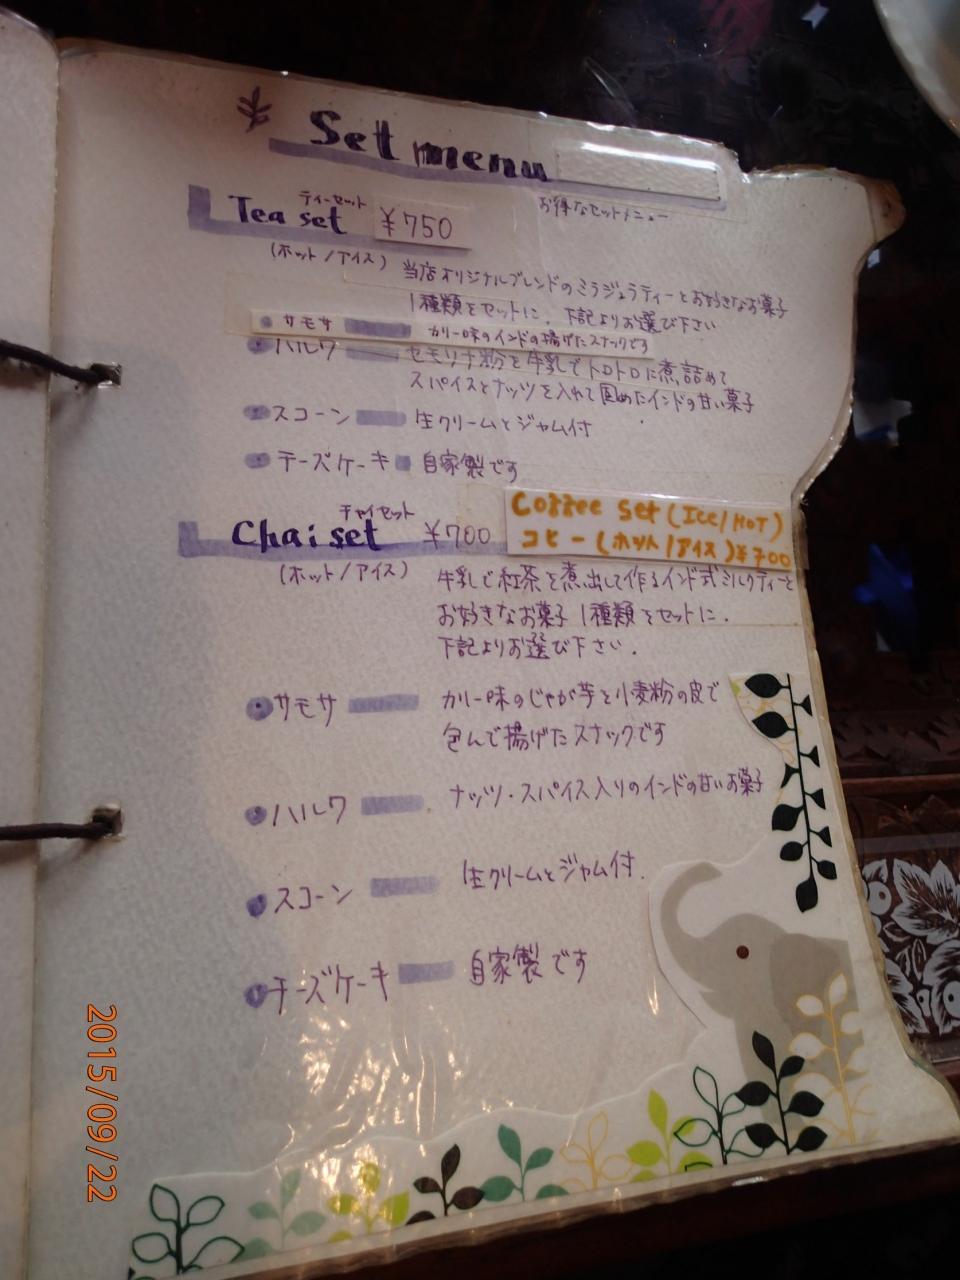 Set menu
お得なセットメニュー
ティーセット
Tea set ¥750
(ホット/アイス)
当店オリジナルブレンドのミラジュラティーとお好きなお菓子
1種類をセットに。下記よりお選び下さい
サモサ カリー味のインドの揚げたスナックです
ハルワ セモリナ粉を牛乳でトロトロに煮詰めて
スパイスとナッツを入れて固めたインドの甘い菓子
スコーン 生クリームとジャム付
チーズケーキ 自家製です
チャイセット
Chai set ¥700
Coffee set (ICE/HOT)
コヒー(ホット/アイス)¥700
(ホット/アイス)
牛乳で紅茶を煮出して作るインド式ミルクティーと
お好きなお菓子1種類をセットに.
下記よりお選び下さい.
サモサ カリー味のじゃが芋を小麦粉の皮で
包んで揚げたスナックです
ハルワ ナッツ・スパイス入りのインドの甘いお菓子
スコーン 生クリームとジャム付.
チーズケーキ 自家製です
2015/09/22